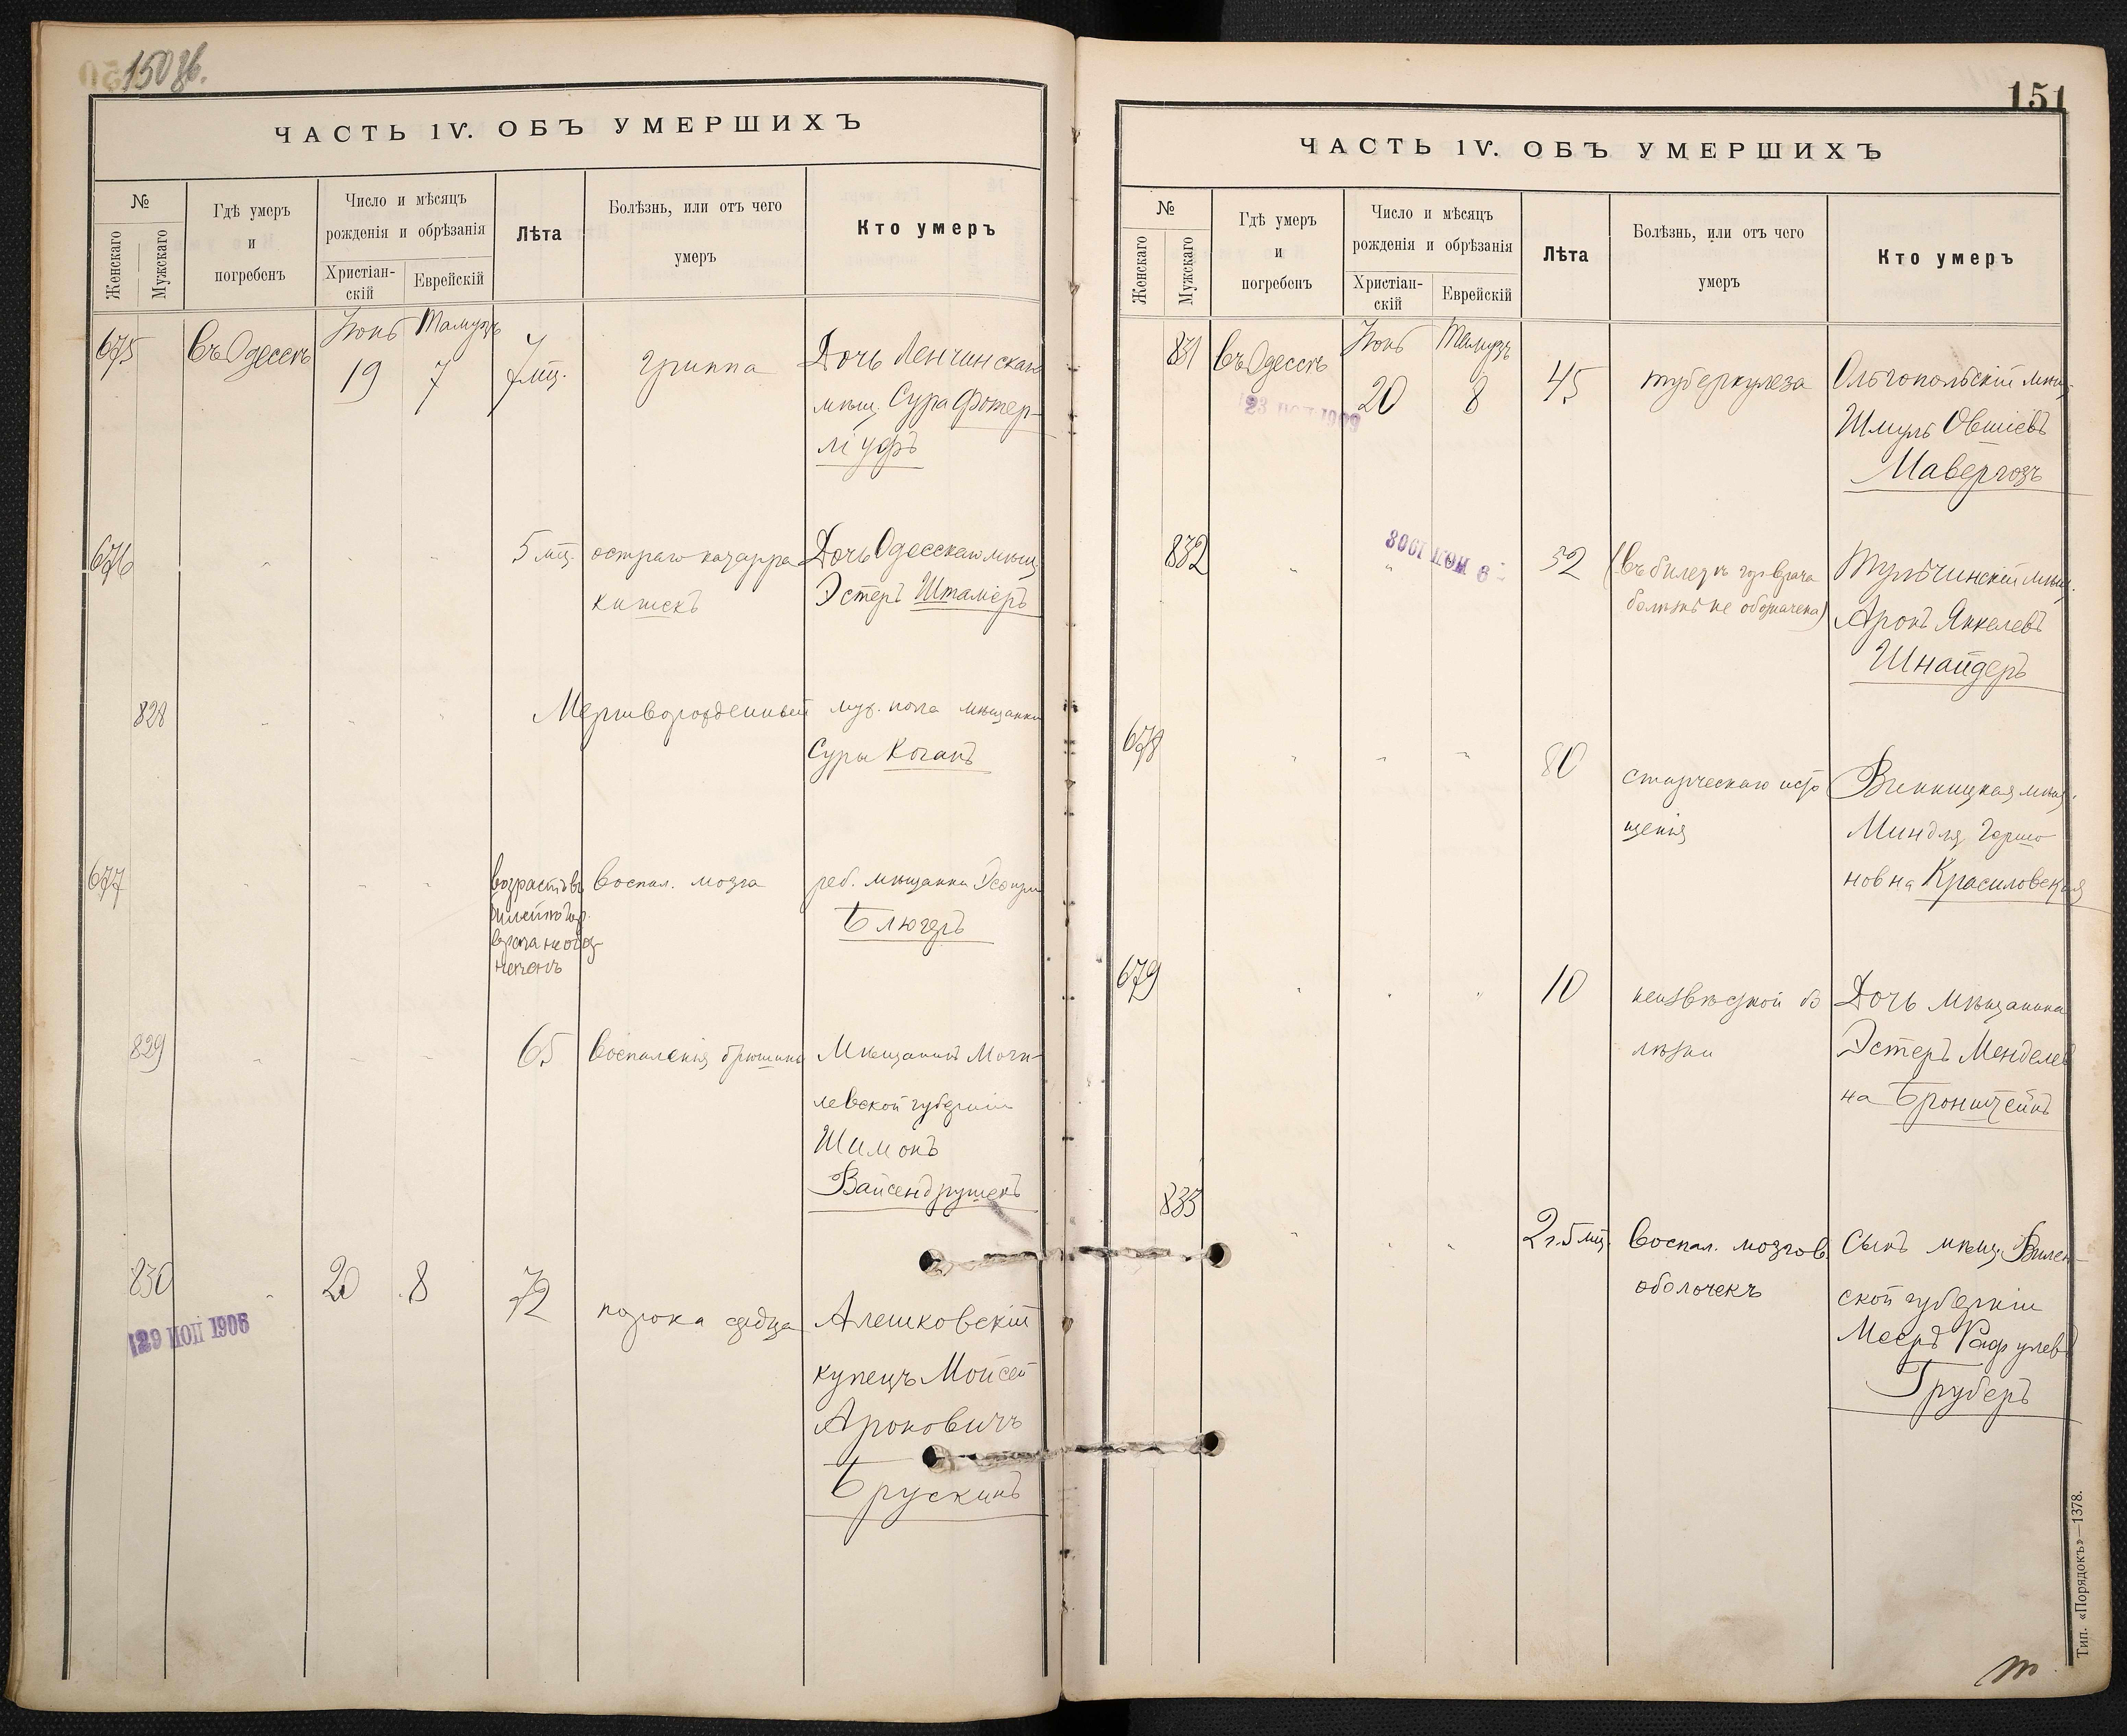 150 об.
ЧАСТЬ IV. ОБЪ УМЕРШИХЪ
№
Женскаго
Мужскаго
Гдѣ умеръ
и
погребенъ
Число и мѣсяцъ
рожденія и обрѣзанія
Христіан-
скій
Еврейскій
Лѣта
Болѣзнь, или отъ чего
умеръ
Кто умеръ
675
въ Одессѣ
Іюнь
19
Тамузъ
7
7 мц.
гриппа
Дочь
мѣщ. Сура Фотер-
676
5 мц.
остраго катарра
кишекъ
Дочь Одесскаго мѣщ.
Эстеръ Шталіеръ
828
Мертворожденный муж. пола мѣщанки
Суры Коганъ
677
возрастъ въ
билетѣ гор.
врача не обоз-
наченъ
воспал. мозга
реб. мѣщанки
Блюгеръ
829
65
воспаленія брюшины
Мѣщанинъ Моги-
левской губерніи
Шимонъ
Вайсендрушекъ
830
20
8
72
порока сердца
Алешковскій
купецъ Мойсей
Ароновичъ
Брускинъ
151
ЧАСТЬ IV. ОБЪ УМЕРШИХЪ
№
Женскаго
Мужскаго
Гдѣ умеръ
и
погребенъ
Число и мѣсяцъ
рожденія и обрѣзанія
Христіан-
скій
Еврейскій
Лѣта
Болѣзнь, или отъ чего
умеръ
Кто умеръ
831
въ Одессѣ
Іюнь
20
Тамузъ
8
45
туберкулеза
Ольгопольскій мѣщ.
Шмуль Овшіевъ
Мавергозъ
832
52
(въ билетѣ гор. врача
болѣзнь не обозначена)
Тульчинскій мѣщ.
Аронъ Янкелевъ
Шнайдеръ
678
80
старческаго исто
щенія
Винницкая мѣщ.
Миндля Гершо
новна Красиловская
679
10
неизвѣстной бо
лѣзни
Дочь мѣщанина
Эстеръ Менделев
на Бронштейнъ
833
2 г. 5 мц.
воспал. мозгов.
оболочекъ
Сынъ мѣщ. Вилен-
ской губерніи
Мееръ
Груберъ
Тип. «Порядокъ»—1378.